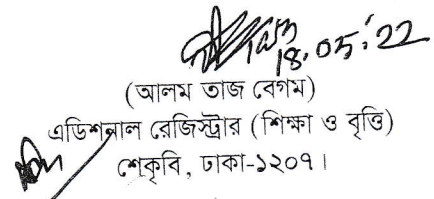 18.05.22
(আলম তাজ বেগম)
এডিশনাল রেজিস্ট্রার (শিক্ষা ও বৃত্তি)
শেকৃবি, ঢাকা-১২০৭।